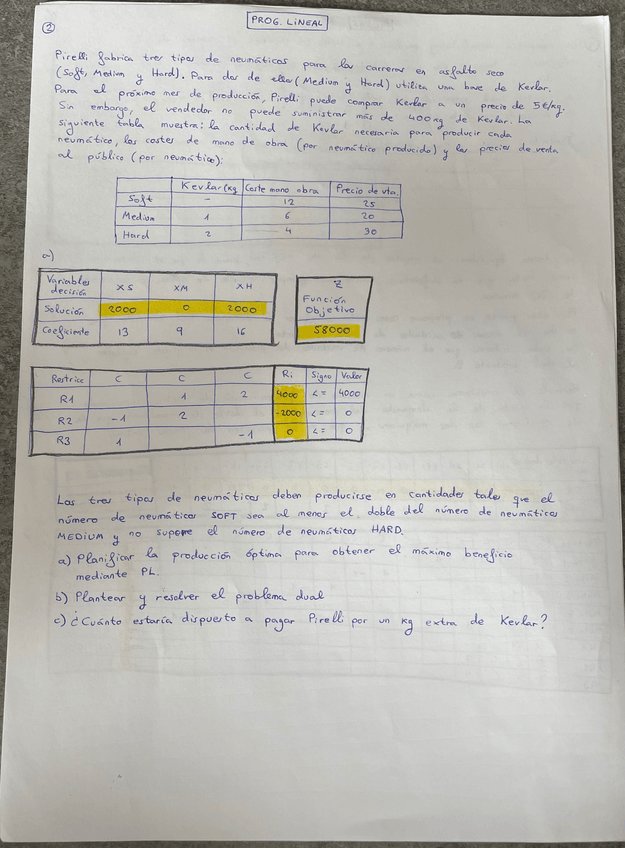 ②
PROG. LINEAL
Pirelli fabrica tres tipos de neumáticos para las carreras en asfalto seco
(Soft, Medium y Hard). Para dos de ellos (Medium y Hard) utiliza una base de Kevlar.
Para el próximo mes de producción, Pirelli puede comprar Kevlar a un precio de 5€/kg.
Sin embargo, el vendedor no puede suministrar más de 400kg de Kevlar. La
siguiente tabla muestra: la cantidad de Kevlar necesaria para producir cada
neumático, los costes de mano de obra (por neumático producido) y los precios de venta
al público (por neumático):
Kevlar (kg Coste mano obra Precio de vta.
Soft - 12 25
Medium 1 6 20
Hard 2 4 30
a)
Variables decisión XS XM XH
Solución 2000 0 2000
Coeficiente 13 9 16
Z
Función
Objetivo
58000
Restricc C C C Ri Signo Valor
R1 1 2 4000 <= 4000
R2 -1 2 -2000 <= 0
R3 1 -1 0 <= 0
Los tres tipos de neumáticos deben producirse en cantidades tales que el
número de neumáticos SOFT sea al menos el doble del número de neumáticos
MEDIUM y no supere el número de neumáticos HARD.
a) Planificar la producción óptima para obtener el máximo beneficio
mediante PL.
b) Plantear y resolver el problema dual
c) ¿Cuánto estaría dispuesto a pagar Pirelli por un kg extra de Kevlar?